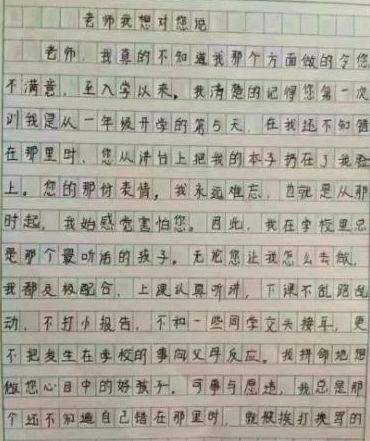 老师我想对您说
老师，我真的不知道我那个方面做的令您
不满意，至入学以来，我清楚的记得您第一次
训我是从一年级开学的第5天，在我还不知错
在那里时，您从讲台上把我的本子扔在了我脸
上。您的那份表情，我永远难忘，也就是从那
时起，我始感觉害怕您。因此，我在学校里总
是那个最听话的孩子。无论您让我怎么去做，
我都及极配合，上课认真听讲，下课不乱跑乱
动，不打小报告，不和一些同学交头接耳，更
不把发生在学校的事向父母反应。我拼命地想
做您心目中的好孩子。可事与愿违，我总是那
个还不知道自己错在那里时，就被挨打挨骂的